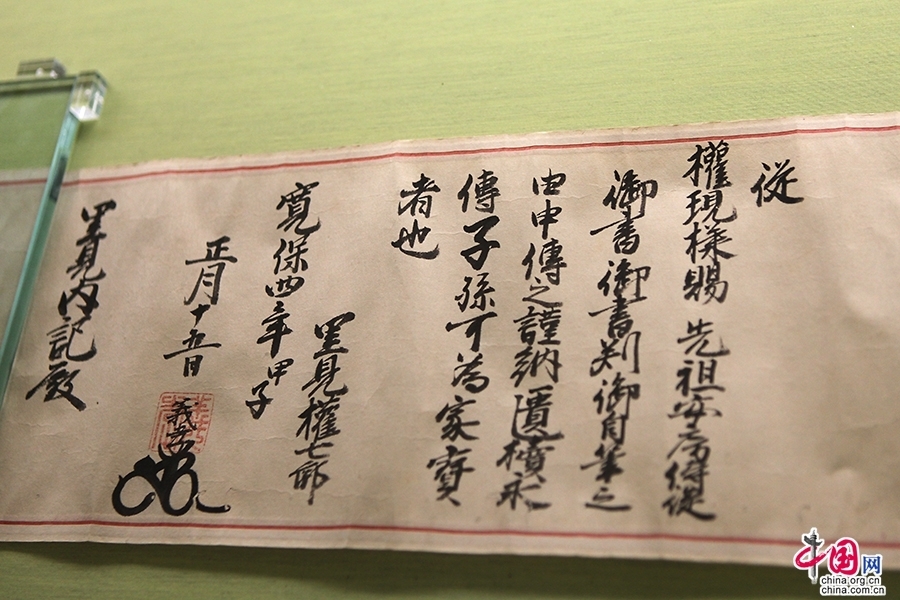 從
權現様賜 先祖安房侍從
御書御書判御自筆之
由申傳之謹納匱櫝永
傳子孫可為家寶
者也
里見權七郎
寛保四年甲子
正月十五日
義
里見内記殿
中国网
china.org.cn
china.com.cn